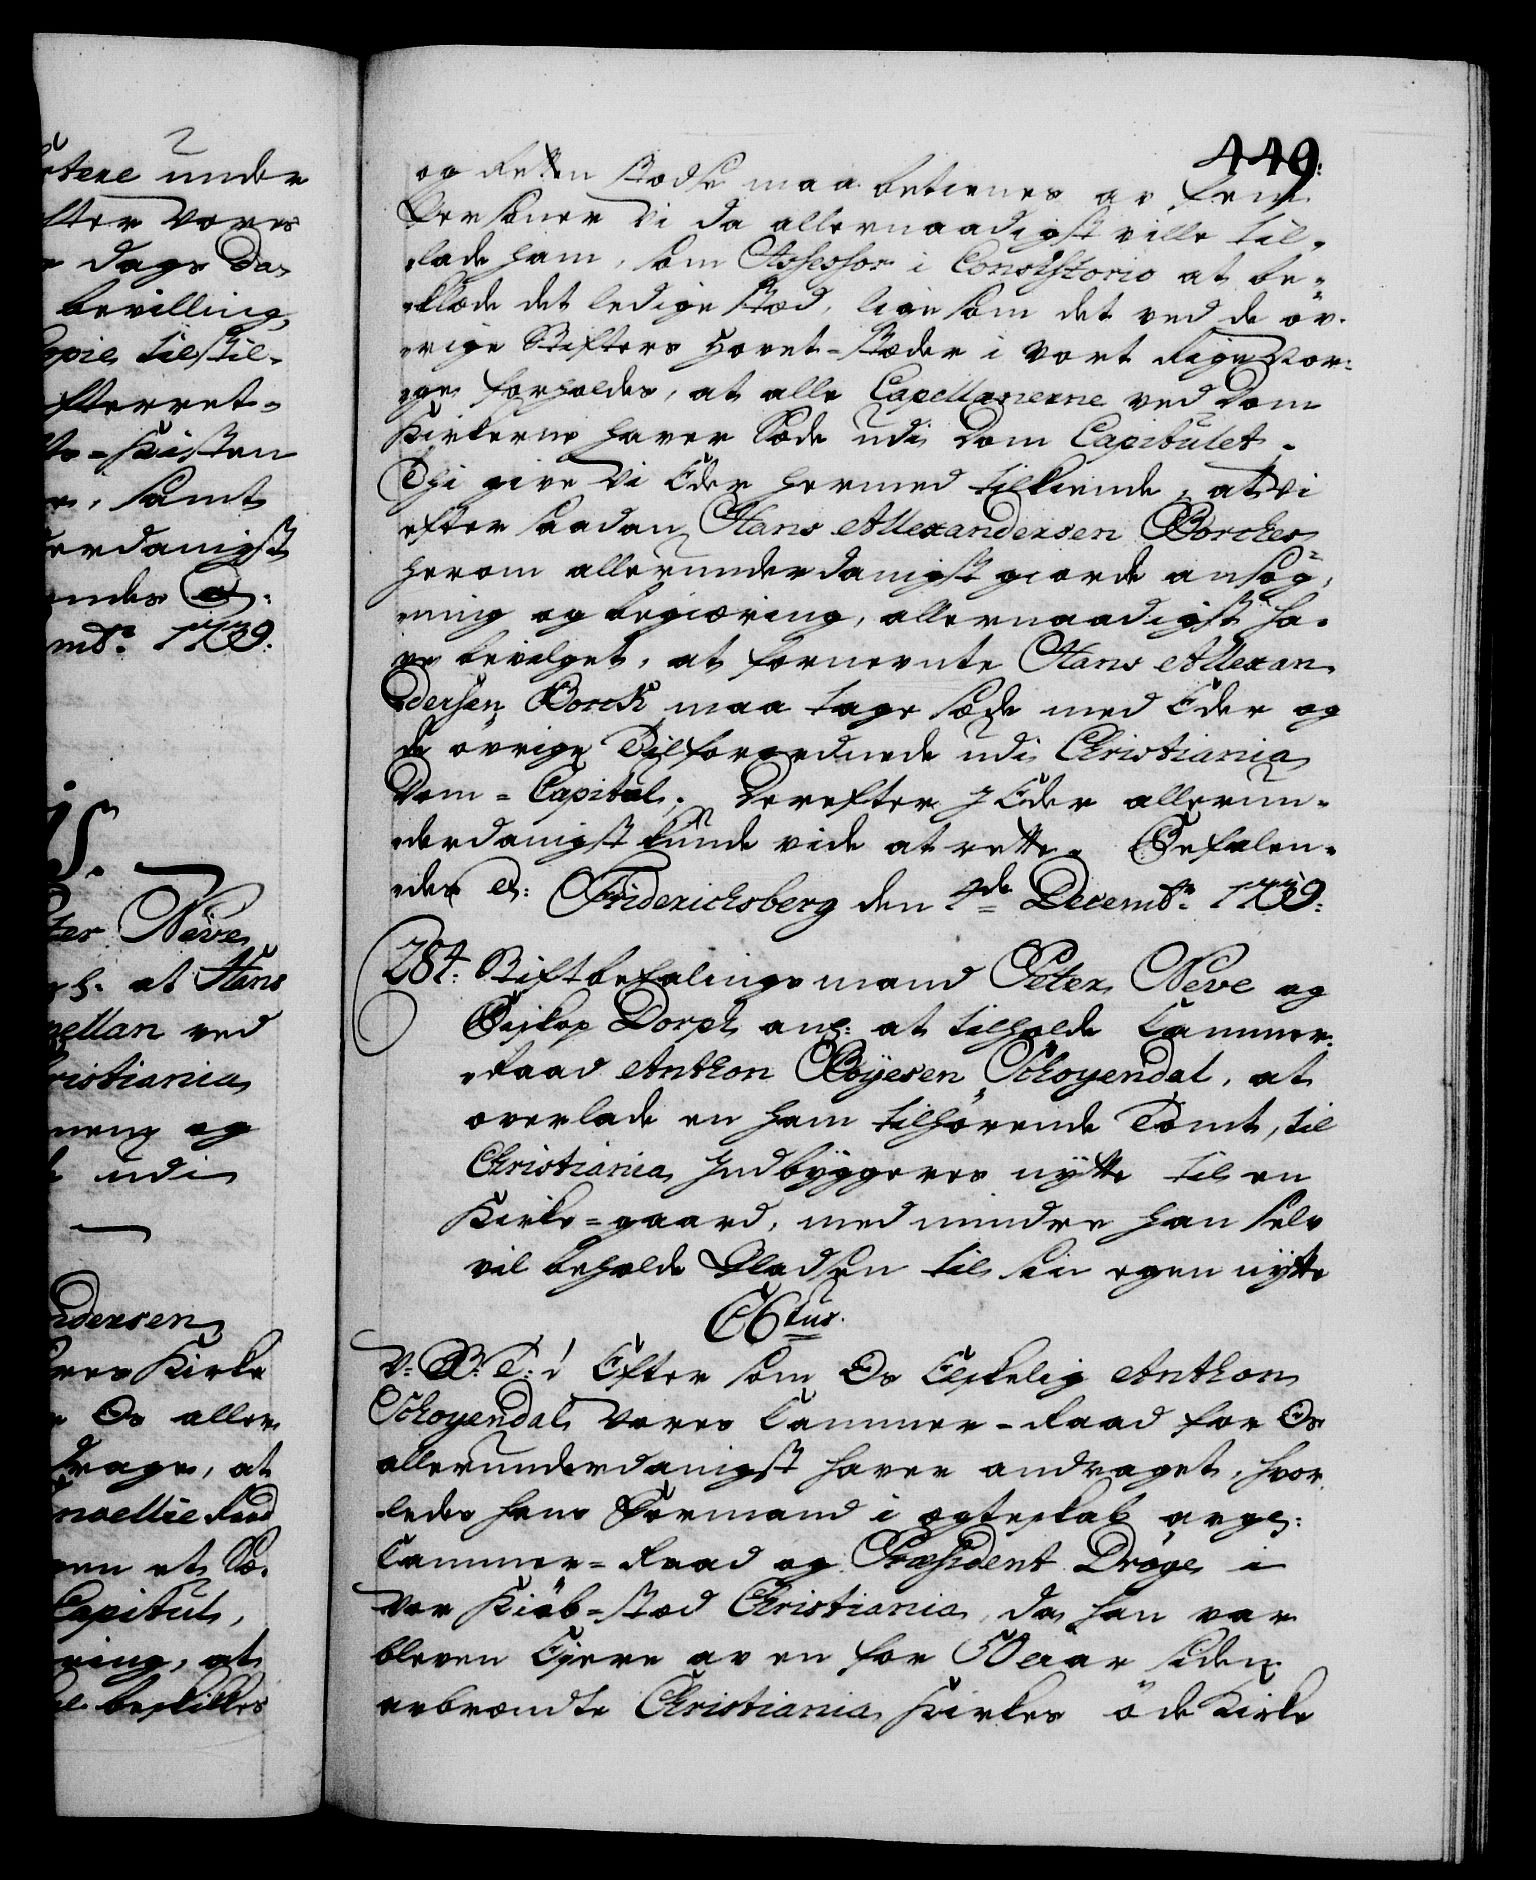 449.
og Retten stædse maa betienes av fem
Personer Vi da allernaadigst ville til-
lade ham, som Assessor i Consistorio at be-
klæde det ledige stæd, lige som det ved de øv-
rige Stifters Hovet-stæder i Vort Rige Nor-
ge forholdes, at alle Capellanerne ved Dom
Kirkerne haver Sæde udi Dom Capitulet.
Thi give Vi Eder hermed tilkiende, at Vi
efter saadan Hans Allexandersen Borches
herom allerunderdanigst giorde ansøg-
ning og begiæring, allernaadigst ha-
ve bevilget, at fornevnte Hans Allexan
dersen Borck maa tage sæde med Eder og
de øvrige Tilforordnede udi Christiania
Dom-Capitul. Derefter I Eder allerun-
derdanigst kunde vide at rette. Befalen-
des etc: Friderichsberg den 4de Decembr. 1739.
284. Stiftbefalingsmand Peter Neve og
Biskop Dorph anl: at tilholde Cammer-
Raad Anthon Böyesen Schöyendal, at
overlade en ham tilhørende Tomt, til
Christiania Indbyggeres nytte til en
Kirke-gaard, med mindre han selv
vil beholde Pladsen til sin egen nytte
C6tus.
V. G. T: i Efter som Os Elskelig Anthon
Schoyendal Vores Cammer-Raad for Os
allerunderdanigst haver andraget, hvor-
ledes hans Formand i ægteskab avg:
Cammer-Raad og Præsident Dröge i
Vor Kiöb-stæd Christiania, da han var
bleven Ejere av en for 50 Aar siden
avbrændte Christiania Kirkes öde Kirke
tere under
fter Vores
dags Da
bevilling,
Copie tilstil-
fterret-
-Kisten
samt
erdanigst
endes
mbr. 1739.
Neve
at Hans
pellan ved
ristiania
og
udi
ndersen
Kirke
Os aller
drage, at
Raad
Capitul,
ring, at
beskikkes